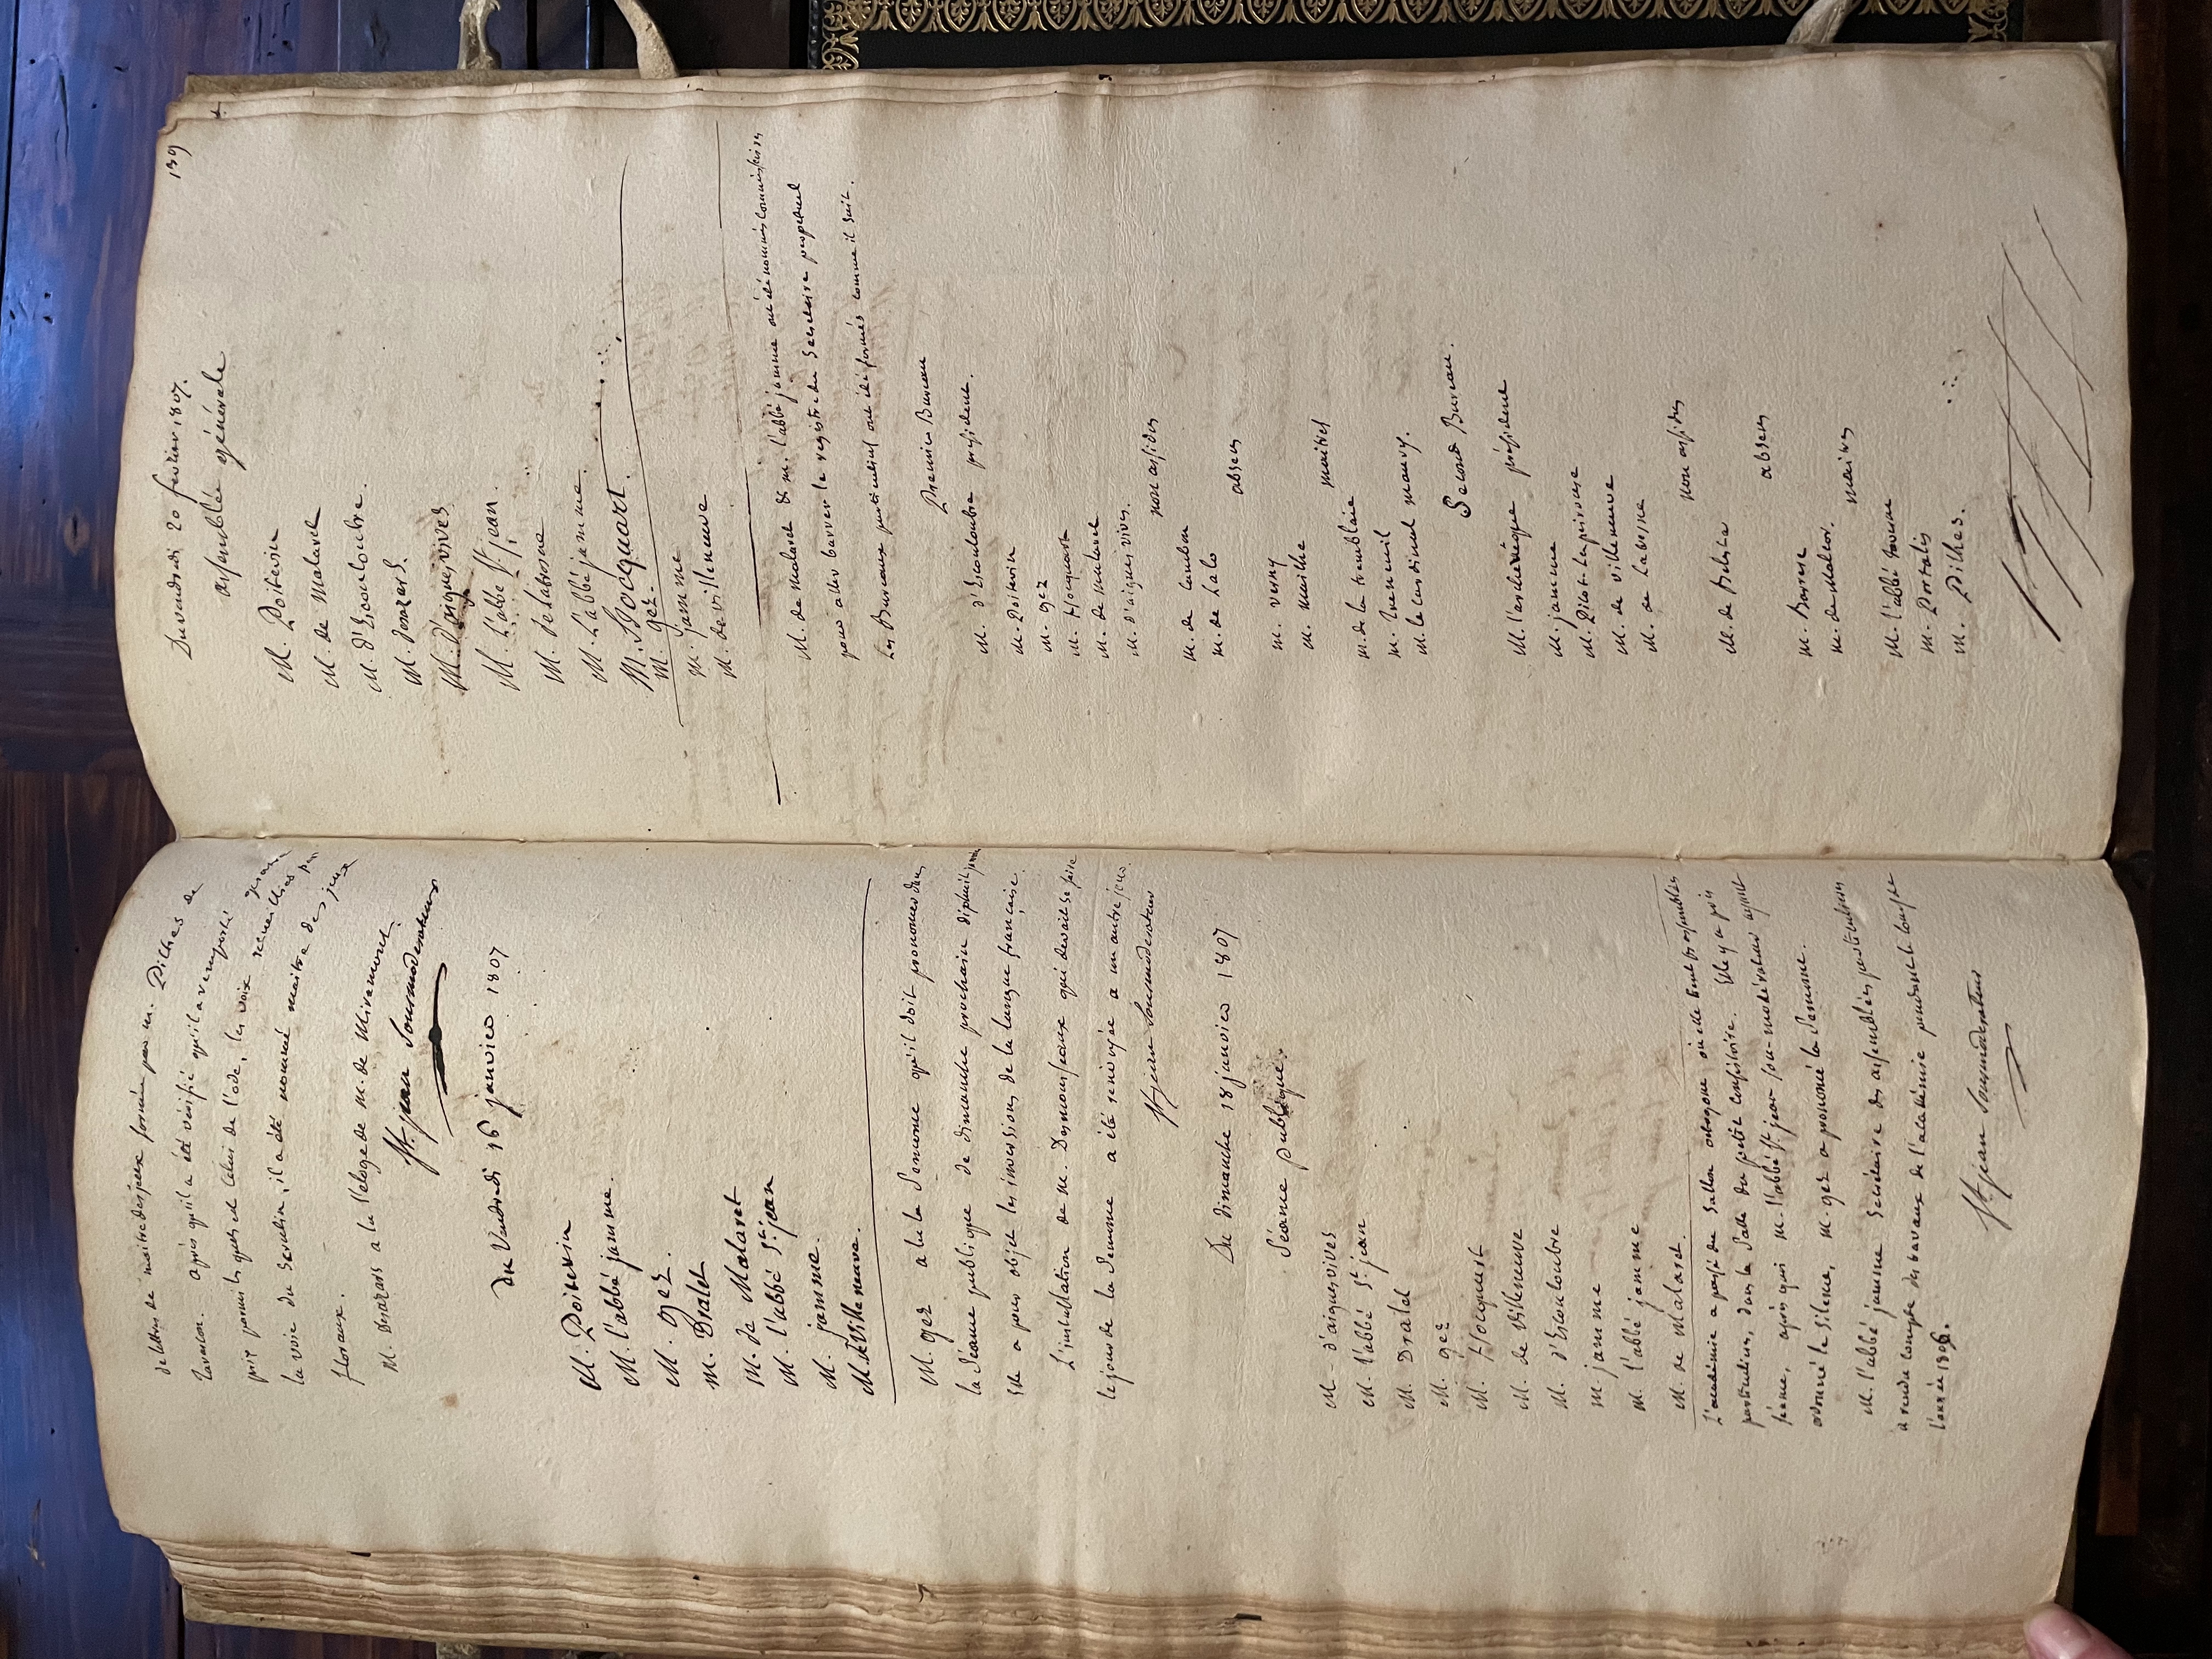 de lettres de maitre des jeux formée par m. Pilhes de
tavascon. après qu'il a été vérifié qu'il a remporté
prix parmi lesquels celui de l'ode, les voix recueillies par
la voie du Scrutin, il a été nommé maitre des jeux
floraux.
M. Desazars a lu l'eloge de m. de Miramont.
St. jean Sousmoderateur
du Vendredi 16 janvier 1807
M. Poitevin
M. l'abbé jamme.
M. gez.
M. Dralet
M. de Malaret
M. l'abbé St. jean
M. jamme.
M. de Villeneuve.
M. gez a lu la Semonce qu'il doit prononcer dans
la Séance publique de dimanche prochain dixhuit janvier
Elle a pour objet les inversions de la langue française.
L'installation de M. Desmousseaux qui devait se faire
le jour de la Semonce a été renvoyée a un autre jour.
St. jean Sousmoderateur
Du dimanche 18 janvier 1807
Séance publique.
M. d'aiguesvives
M. l'abbé St. jean
M. Dralet
M. gez
M. Hocquart
M. de Villeneuve
M. d'Escouloubre
M. jamme
M. l'abbé jamme
M. de Malaret.
L'académie a passé du Sallon octogone où elle tient ses assemblées
particulieres, dans la Salle du petit consistoire. Elle y a pris
séance, après qui M. l'abbé St. jean sou-modérateur ayant
ordonné le Silence, M. gez a prononcé la Semonce.
M. l'abbé jamme Secrétaire des assemblées particulieres
a rendu compte des travaux de l'académie pendant le cours de
l'année 1806.
St. jean Sousmoderateur
139
Du vendredi 20 fevrier 1807.
assemblée générale
M. Poitevin
M. de Malaret
M. d'Escouloubre.
M. Desazars.
M. D'aiguesvives
M. L'abbé St. jean.
M. de labrone
M. L'abbé jamme.
M. Hocquart.
M. gez.
M. jamme
M. de villeneuve
M. de Malaret & M. l'abbé jamme ont été nommés commissaires
pour aller barrer le registre du Secrétaire perpetuel
Les Bureaux particuliers ont été formés comme il suit.
Premier Bureau
M. d'Escouloubre président.
M. Poitevin
M. gez
M. Hocquart
M. de malaret
M. d'aiguesvives.
non assidus
M. de Cambon
M. de Lalo
absens
M. verny
M. mailhe
maitres
M. de la tremblaie
M. Treneuil
M. le cardinal maury.
Second Bureau.
M. l'archevêque président
M. jamme
M. Picot-lapeirouse
M. de villeneuve
M. de labrone
non assidus
M. de Belesta
absens
M. Barere
M. de Malcor.
maitres
M. l'abbé
M. Portalis
M. Pilhes.